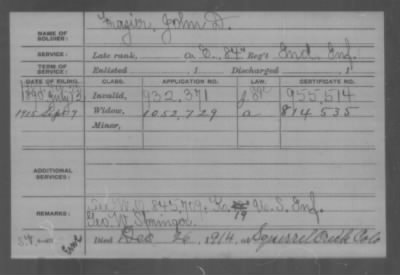 Frazier, John D.
NAME OF SOLDIER:
SERVICE: Late rank, Co. E, 84" Reg't Ind. Inf.
TERM OF SERVICE: Enlisted , 1 Discharged , 1
DATE OF FILING. CLASS. APPLICATION NO. LAW. CERTIFICATE NO.
1890 July 3 Invalid, 932.371 955.514
1915 Sept 7 Widow, 1052.729 a 814 535
Minor,
ADDITIONAL SERVICES:
REMARKS: 845.719, 19 U.S. Inf.
Geo. W. Stringer
Died Dec 6, 1914, at Squirrel Creek Colo